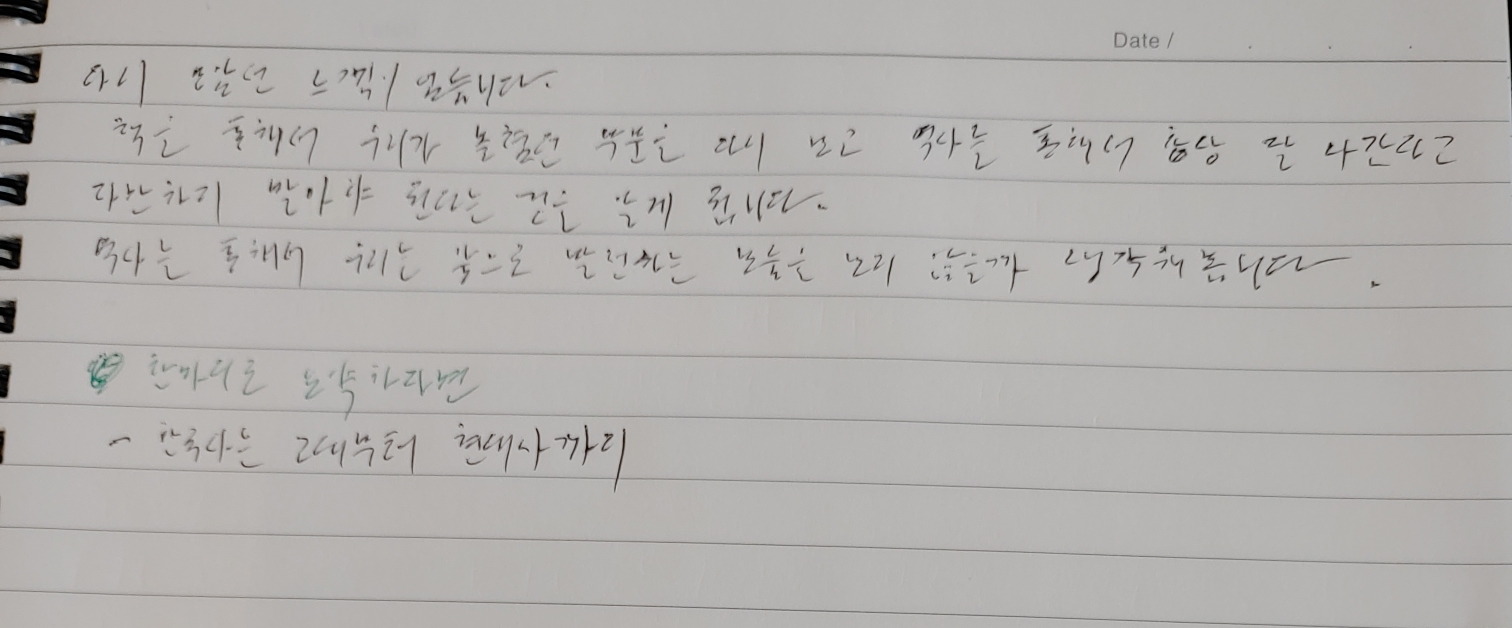 Date /
다시 느낌이 없습니다.
책을 통해서 우리가 부분을 다시 보고 역사를 통해서 항상 잘 나간다고
자만하지 말아야 된다는 것을 알게 됩니다.
역사는 통해서 우리는 앞으로 발전하는 모습을 보지 않을까 생각해봅니다.
한마디로 요약하라면
- 한국사는 고대부터 현대사까지